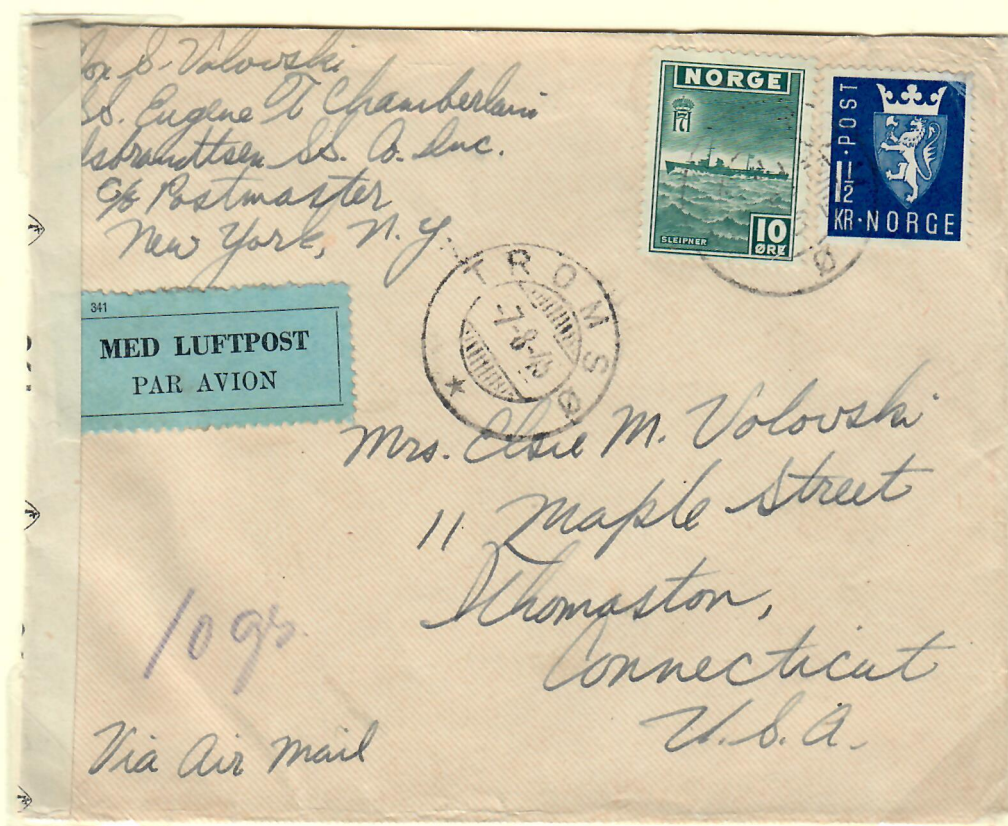 S. Volowski
SS. Eugene T Chamberlain
sbrandtsen SS. Co. Inc.
c/o Postmaster
New York, N. Y.
NORGE
7
SLEIPNER
10
ØRE
POST
1 1/2
KR · NORGE
TROMSØ
-7-8-45
341
MED LUFTPOST
PAR AVION
Mrs. Elsie M. Volovski
11 Maple Street
Thomaston,
Connecticut
U.S.A.
10 gr.
Via Air Mail